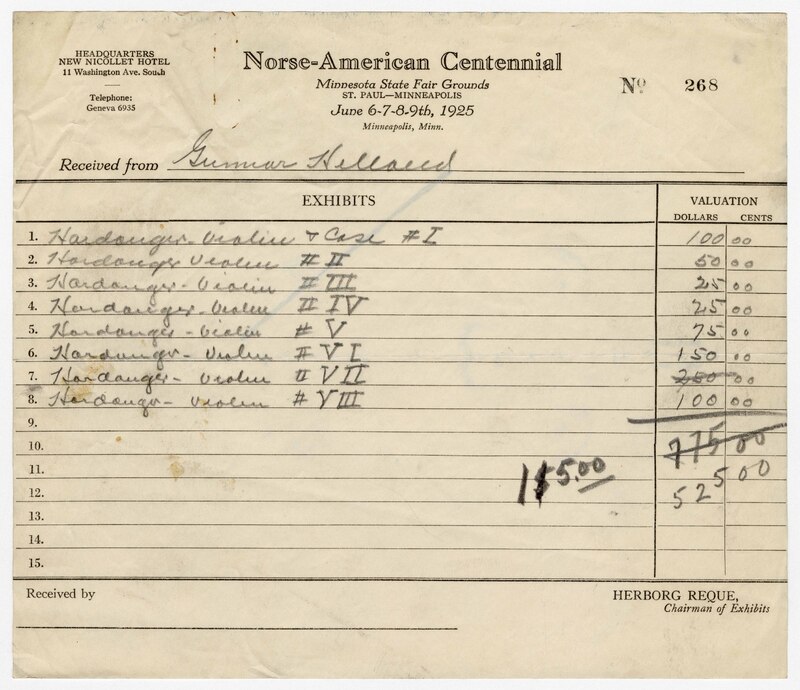 HEADQUARTERS
NEW NICOLLET HOTEL
11 Washington Ave. South
Telephone:
Geneva 6935
Norse-American Centennial
Minnesota State Fair Grounds
ST. PAUL—MINNEAPOLIS
June 6-7-8-9th, 1925
Minneapolis, Minn.
Nº 268
Received from Gunnar Helland
EXHIBITS VALUATION
DOLLARS CENTS
1. Hardanger- Violin & Case # I 100 00
2. Hardanger Violin # II 50 00
3. Hardanger- Violin # III 25 00
4. Hardanger- Violin # IV 25 00
5. Hardanger- Violin # V 75 00
6. Hardanger- Violin # VI 150 00
7. Hardanger- Violin # VII 250 00
8. Hardanger- Violin # VIII 100 00
9.
10. 775 00
11. 525 00
12.
13.
14.
15.
Received by
HERBORG REQUE,
Chairman of Exhibits